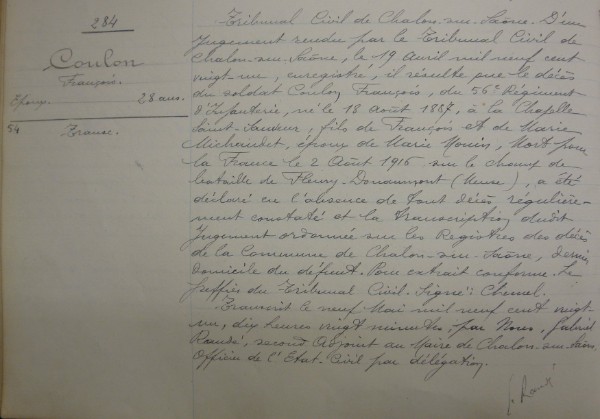 284
Coulon
François.
Epoux. 28 ans.
54 France.
Tribunal Civil de Chalon-sur-Saône. D'un
jugement rendu par le Tribunal Civil de
Chalon-sur-Saône, le 19 Avril mil neuf cent
vingt-un, enregistré, il résulte que le décès
du soldat Coulon François, du 56e Régiment
d'Infanterie, né le 18 Août 1887, à la Chapelle
Saint-Sauveur, fils de François et de Marie
Michaudet, époux de Marie Mouis, Mort pour
la France le 2 Août 1916 sur le champ de
bataille de Fleury-Douaumont (Meuse), a été
déclaré en l'absence de tout décès régulière-
ment constaté et la transcription dudit
Jugement ordonnée sur les Registres des décès
de la Commune de Chalon-sur-Saône, dernier
domicile du défunt. Pour extrait conforme. Le
Greffier du Tribunal Civil. Signé:
Transcrit le neuf Mai mil neuf cent vingt-
un, dix heures vingt minutes, par Nous, Gabriel
second Adjoint au Maire de Chalon-sur-Saône,
Officier de l'Etat-Civil par délégation.